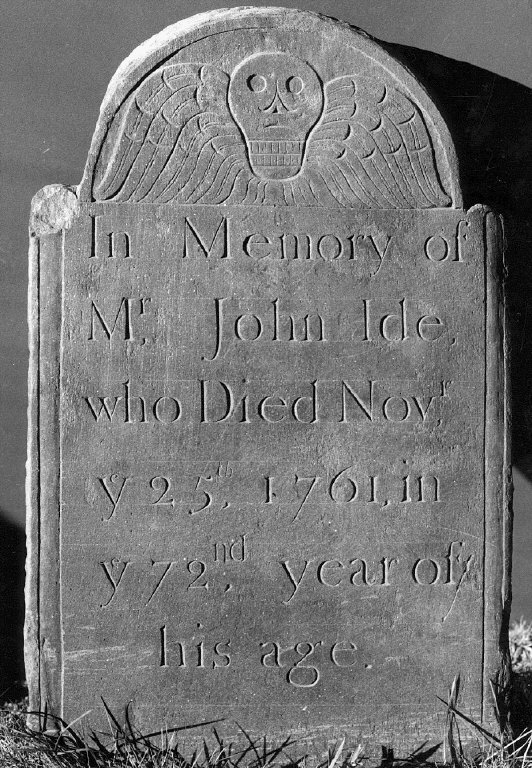 In Memory of
Mʳ. John Ide,
who Died Novʳ.
y 25ᵗʰ, 1761, in
y 72ⁿᵈ, year of
his age.